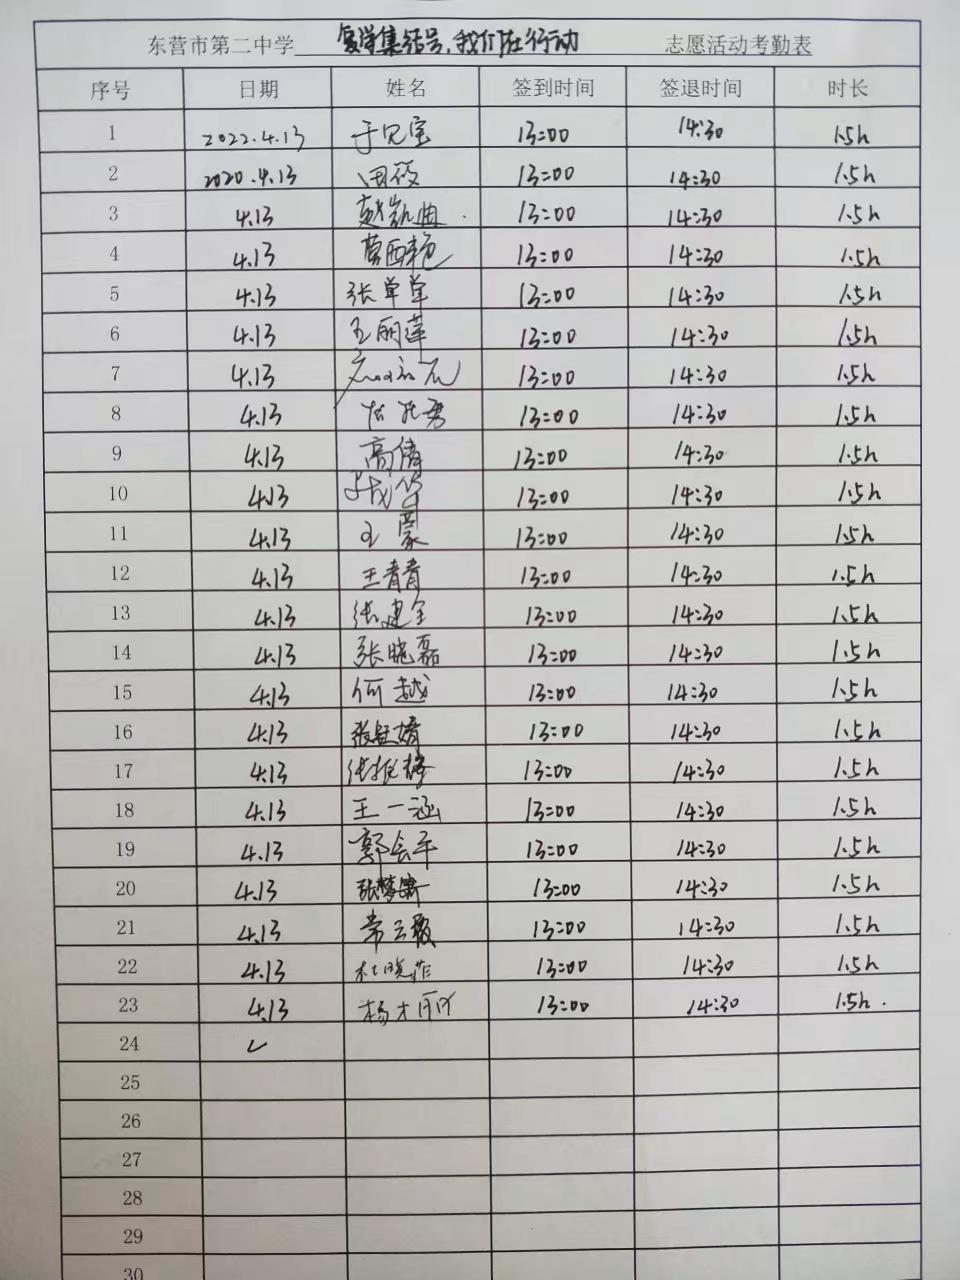 东营市第二中学 复学集结号,我们在行动 志愿活动考勤表
序号 日期 姓名 签到时间 签退时间 时长
1 2022.4.13 于见宝 13:00 14:30 1.5h
2 2020.4.13 田筱 13:00 14:30 1.5h
3 4.13 赵凯曲 13:00 14:30 1.5h
4 4.13 13:00 14:30 1.5h
5 4.13 张单单 13:00 14:30 1.5h
6 4.13 王丽莲 13:00 14:30 1.5h
7 4.13 13:00 14:30 1.5h
8 4.13 13:00 14:30 1.5h
9 4.13 高倩 13:00 14:30 1.5h
10 4.13 13:00 14:30 1.5h
11 4.13 王蒙 13:00 14:30 1.5h
12 4.13 王青青 13:00 14:30 1.5h
13 4.13 张建全 13:00 14:30 1.5h
14 4.13 张晓磊 13:00 14:30 1.5h
15 4.13 何越 13:00 14:30 1.5h
16 4.13 张钰婧 13:00 14:30 1.5h
17 4.13 张振梅 13:00 14:30 1.5h
18 4.13 王一涵 13:00 14:30 1.5h
19 4.13 郭会平 13:00 14:30 1.5h
20 4.13 13:00 14:30 1.5h
21 4.13 常云霞 13:00 14:30 1.5h
22 4.13 杜晓菲 13:00 14:30 1.5h
23 4.13 杨才丽 13:00 14:30 1.5h.
24 ✓
25
26
27
28
29
30